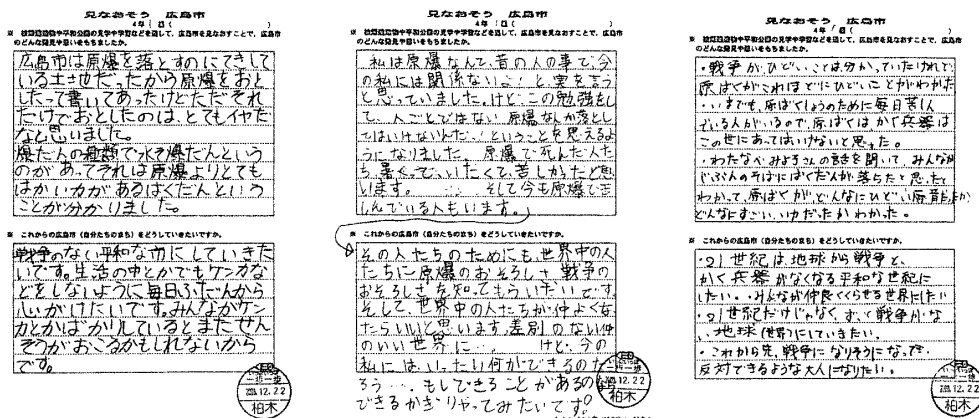 見なおそう 広島市
4年1組( )
※ 被爆建造物や平和公園の見学や学習などを通して、広島市を見なおすことで、広島市
のどんな発見や思いをもちましたか。
広島市は原爆を落とすのにてきして
いる土地だったから原爆をおと
したって書いてあったけどただそれ
だけでおとしたのは、とてもイヤだ
なと思いました。
爆だんの種類で水そ爆だんという
のがあってそれは原爆よりとても
はかい力があるばくだんという
ことが分かりました。
※ これからの広島市(自分たちのまち)をどうしていきたいですか。
戦争のない平和な市にしていきた
いです。生活の中とかでもケンカな
どをしないように毎日ふだんから
心がけたいです。みんながケン
カとかばかりしているとまたせん
そうがおこるかもしれないから
です。
12.22
柏木
見なおそう 広島市
4年1組( )
※ 被爆建造物や平和公園の見学や学習などを通して、広島市を見なおすことで、広島市
のどんな発見や思いをもちましたか。
私は原爆なんて、昔の人の事で、今
の私には関係ないよ!と実を言う
と思っていました。けど、この勉強をし
て、人ごとではない 原爆なんか落とし
てはいけないんだ!ということを思えるよ
うになりました。 原爆で死んだ人た
ち、暑くて、いたくて、苦しかったと思
います。 …… そして今も原爆で苦
しんでいる人もいます。
※ これからの広島市(自分たちのまち)をどうしていきたいですか。
その人たちのためにも、世界中の人
たちに原爆のおそろしさ 戦争の
おそろしさを知ってもらいたいです
そして、世界中の人たちが仲よくな
たらいいと思います。差別のない仲
のいい世界に…。 けど、今の
私には、いったい何ができるのだ
ろう…。もしできることがあるのなら
できるかぎりやってみたいです。
12.22
柏木
見なおそう 広島市
4年1組( )
※ 被爆建造物や平和公園の見学や学習などを通して、広島市を見なおすことで、広島市
のどんな発見や思いをもちましたか。
・戦争がひどいことは分かっていたけれど
原ばくがこれほどにひどいことがわかった
・いまでも、原ばくしょうのために毎日苦しん
でいる人がいるので、原ばくはかく兵器は
この世にあってはいけないと思った。
・わたなべみよさんの話を聞いて、みんなが
じぶんのそばにばくだんが落ちたと思ったと
わかって、原ばくがどんなにひどい
どんなにすごいいりだったかわかった。
※ これからの広島市(自分たちのまち)をどうしていきたいですか。
・21世紀は、地球から戦争と、
かく兵器がなくなる平和な世紀に
したい。・みんなが仲良くくらせる世界にしたい
・21世紀だけじゃなく、ずっと戦争がな
い、地球(世界)にしていきたい。
・これから先、戦争になりそうになったら、
反対できるような大人になりたい。
12.22
柏木